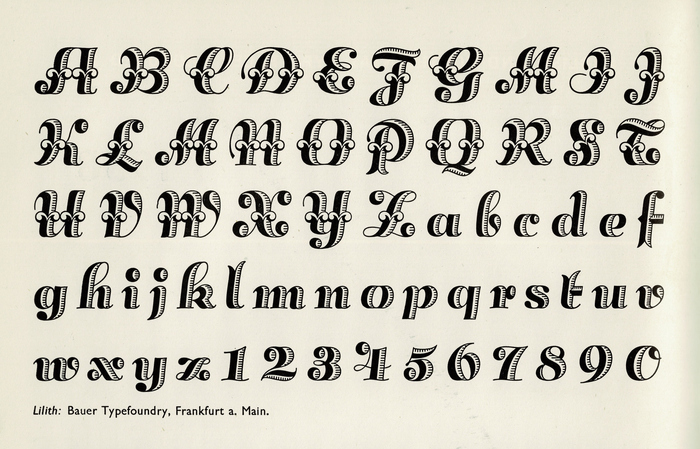 A B C D E F G H I J
K L M N O P Q R S T
U V W X Y Z a b c d e f
g h i j k l m n o p q r s t u v
w x y z 1 2 3 4 5 6 7 8 9 0
Lilith: Bauer Typefoundry, Frankfurt a. Main.